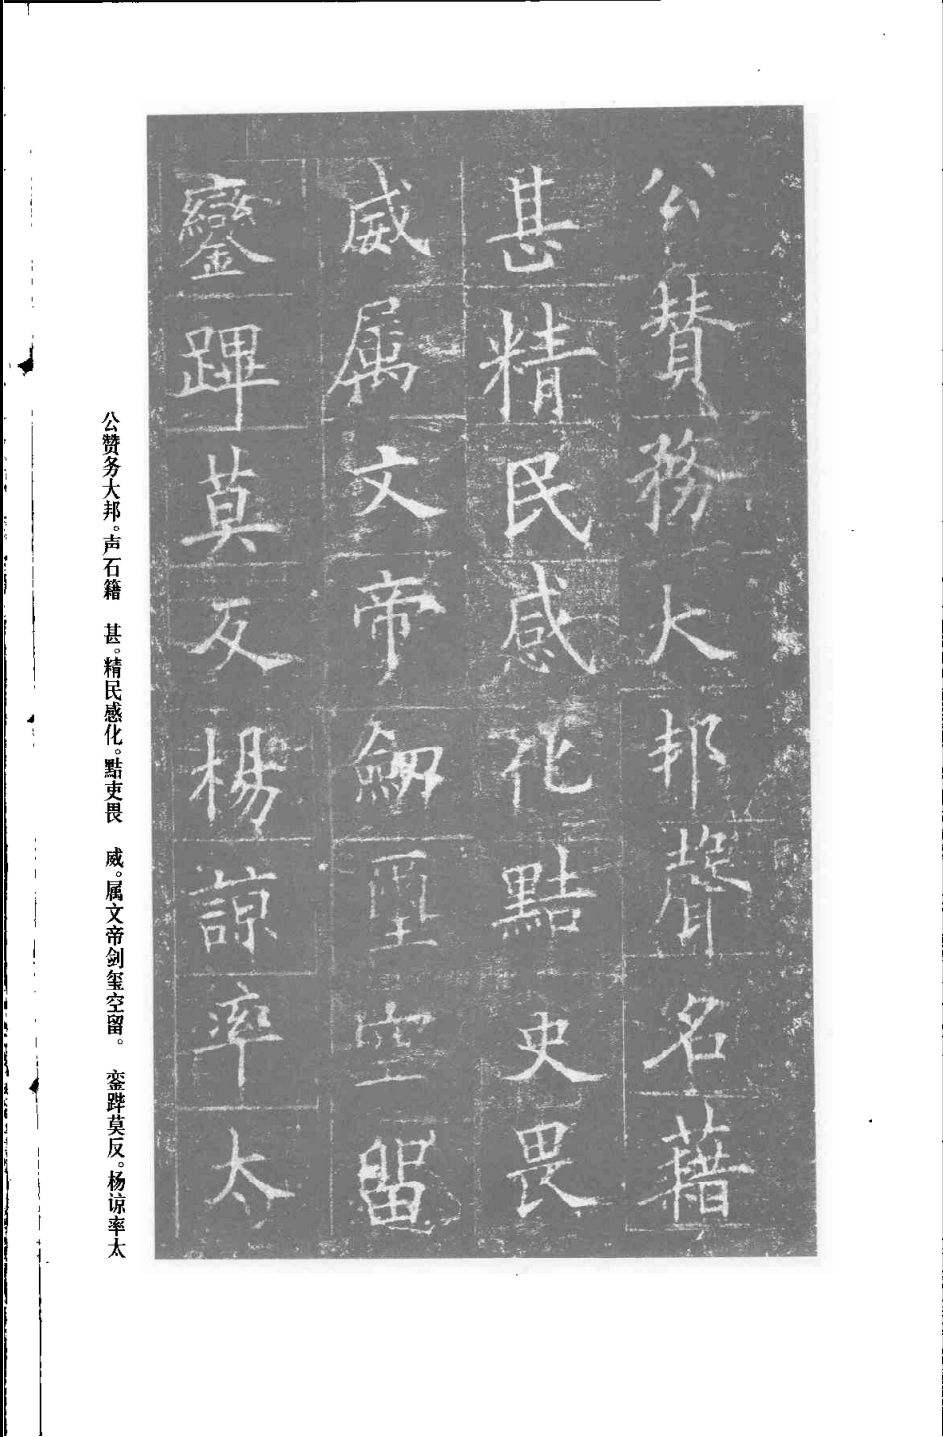 公賛務大邦聲名藉
甚精民感化黠吏畏
威属文帝劒璽空留
鑾蹕莫反楊諒率太
公赞务大邦。声石籍 甚。精民感化。點吏畏 威。属文帝剑玺空留。 銮跸莫反。杨谅率太